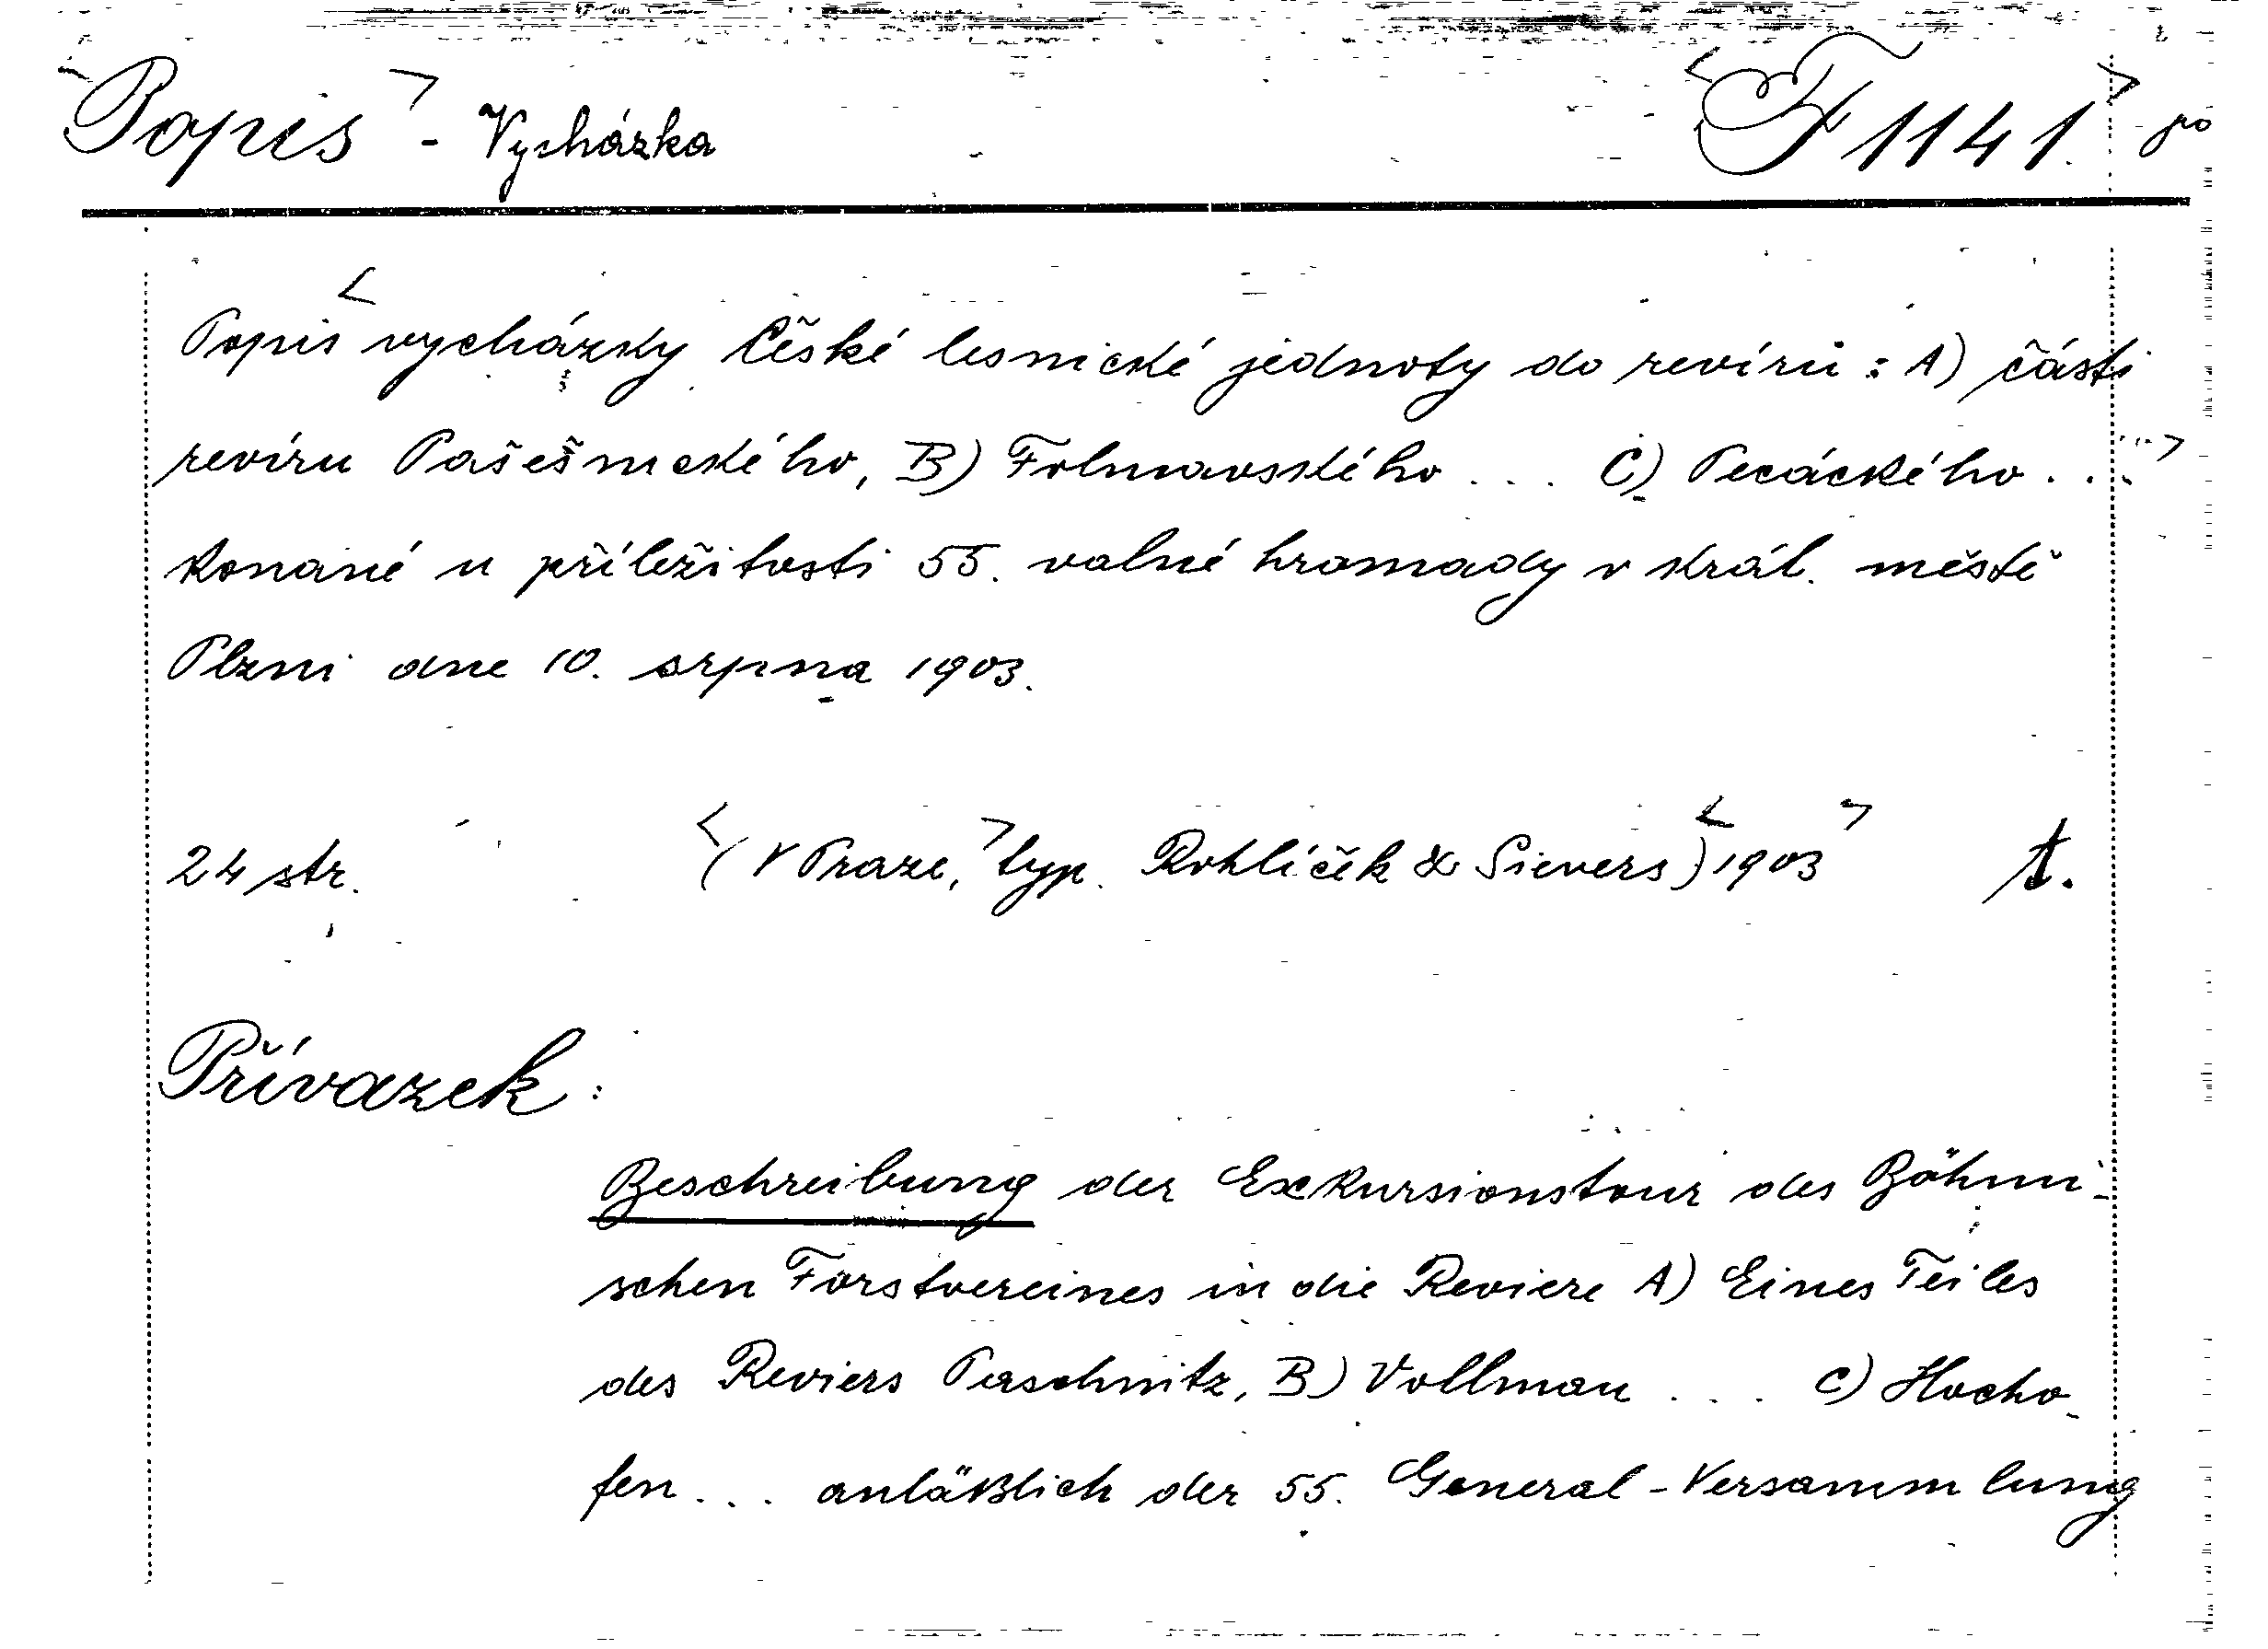 Popis - Vycházka F 1141. po
Popis vycházky České lesnické jednoty do revírů : A) části
revíru Pašešnického, B) Folmavského ... C) Pecáckého ...
konané u příležitosti 55. valné hromady v král. městě
Plzni dne 10. srpna 1903.
24 str. (V Praze, typ. Rohlíček & Sievers) 1903 t.
Přívazek :
Beschreibung der Exkursionstour des Böhmi-
schen Forstvereines in die Reviere A) Eines Teiles
des Reviers Paschnitz, B) Vollmau ... C) Hocho-
fen ... anläßlich der 55. General-Versammlung